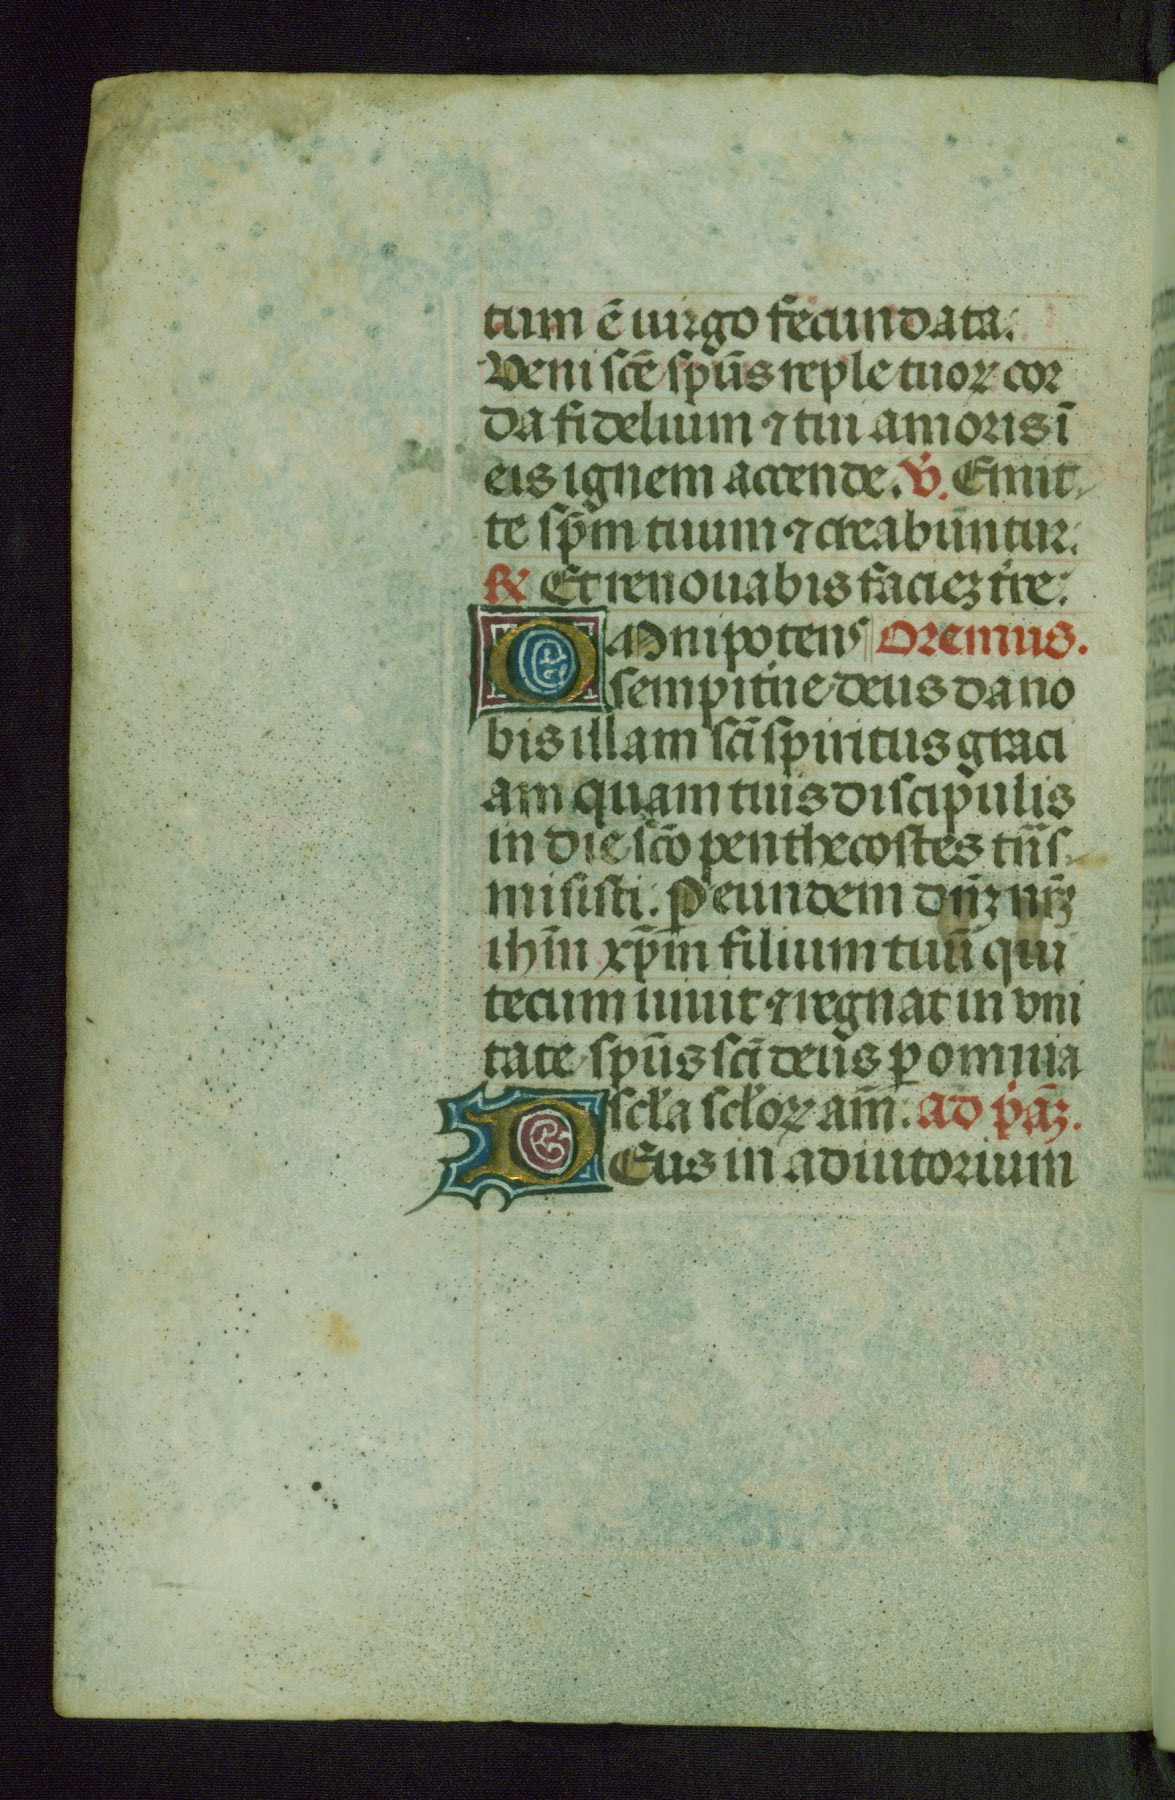 tum ē uirgo fecundata.
Veni scē spūs reple tuoꝝ cor
da fidelium ⁊ tui amoris ī
eis ignem accende. ℣. Emit
te spm̄ tuum ⁊ creabuntur.
℟ Et renouabis faciez tr̄e:
Omnipotens Oremus.
sempit̄ne deus da no
bis illam scī spiritus graci
am quam tuis discipulis
in die scō penthecostes tn̄s
misisti. Ꝑ eundem dn̄ꝫ nr̄ꝫ
ihm̄ xp̄m filium tuū qui
tecum uiuit ⁊ regnat in vni
tate spūs scī deus ꝑ omnia
scl̄a scl̄oꝝ am̄. ad p̄aꝫ.
DEus in adiutorium